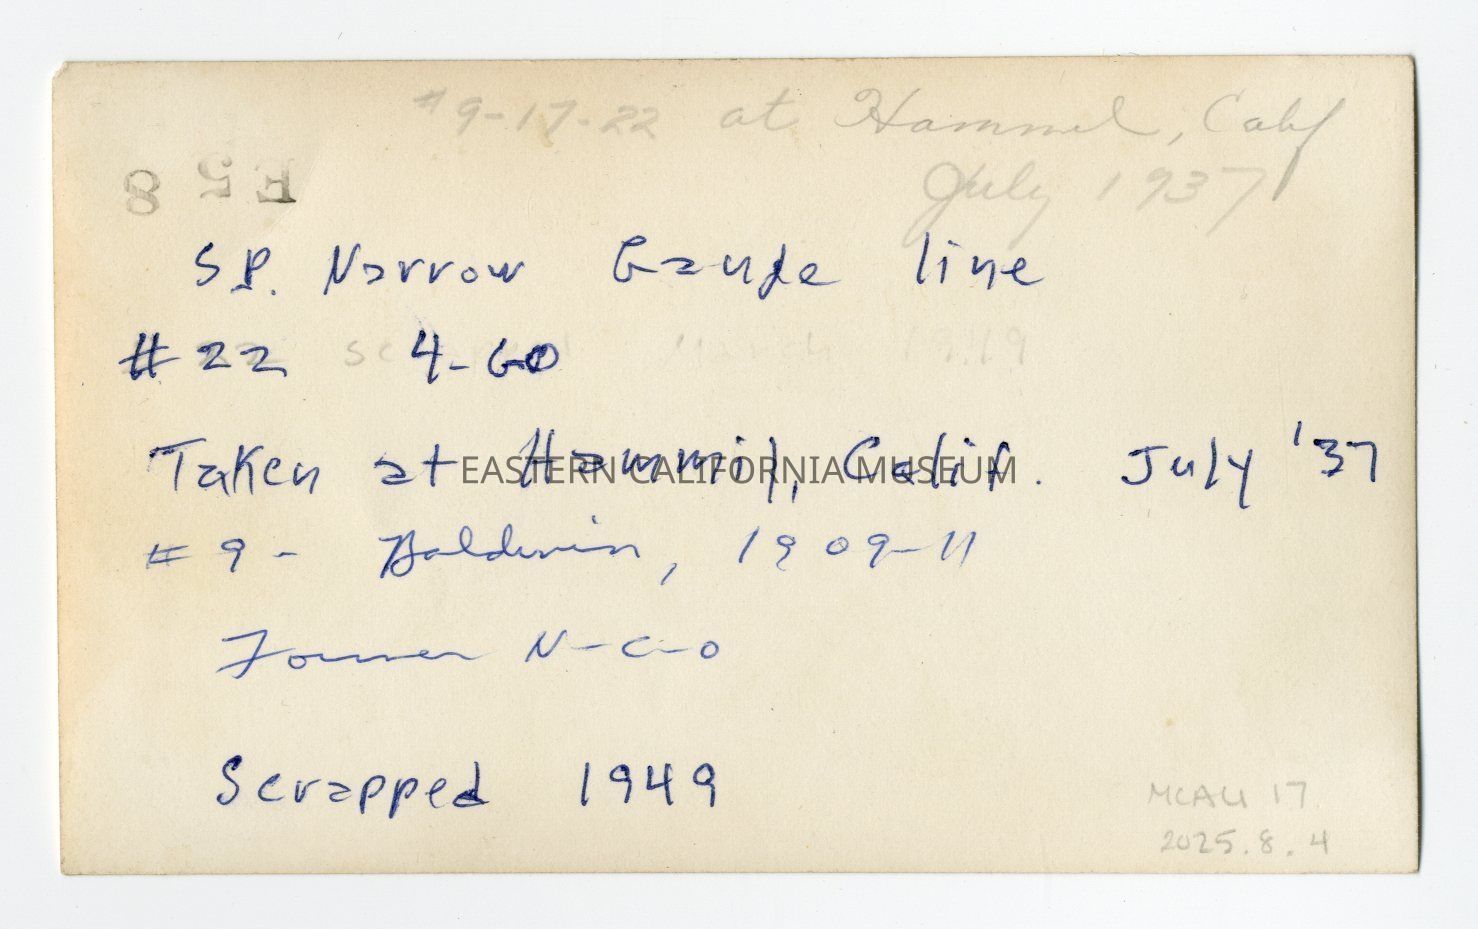 #9-17-22 at Hammel, Calif
July 1937
E58
S.P. Narrow Gauge line
#22 4-60
Taken at Hammil, Calif. July '37
EASTERN CALIFORNIA MUSEUM
#9 - Baldwin, 1909-11
Former N-C-O
Scrapped 1949
MCAU 17
2025.8.4